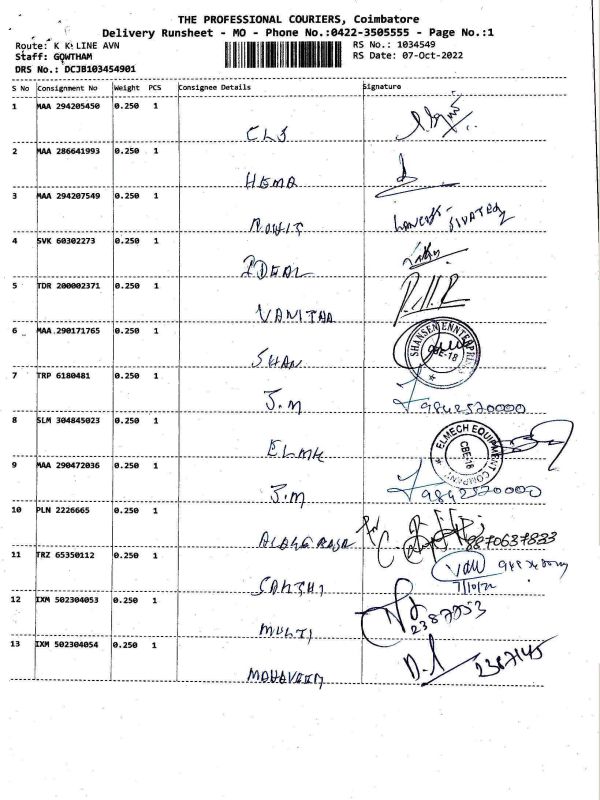 THE PROFESSIONAL COURIERS, Coimbatore
Delivery Runsheet - MO - Phone No.:0422-3505555 - Page No.:1
Route: K K LINE AVN
RS No.: 1034549
Staff: GOWTHAM
RS Date: 07-Oct-2022
DRS No.: DCJB103454901
S No Consignment No Weight PCS Consignee Details Signature
1 MAA 294205450 0.250 1
2 MAA 286641993 0.250 1
HEMA
3 MAA 294207549 0.250 1
ROHIT
4 SVK 60302273 0.250 1
IDEAL
5 TDR 200002371 0.250 1
VANITHA
6 MAA 290171765 0.250 1
SHAN
SHANSEN ENNTERPRISES
CBE-18
7 TRP 6180481 0.250 1
J.M 9842520000
8 SLM 304845023 0.250 1
ELMH
ELMECH EQUIPMENT COMPANY
CBE-18
9 MAA 290472036 0.250 1
J.M 9842520000
10 PLN 2226665 0.250 1
8870637833
11 TRZ 65350112 0.250 1
SAKTHI
7/10/22
12 IXM 502304053 0.250 1
MULTI 2387253
13 IXM 502304054 0.250 1
MAHAVEER 2387145